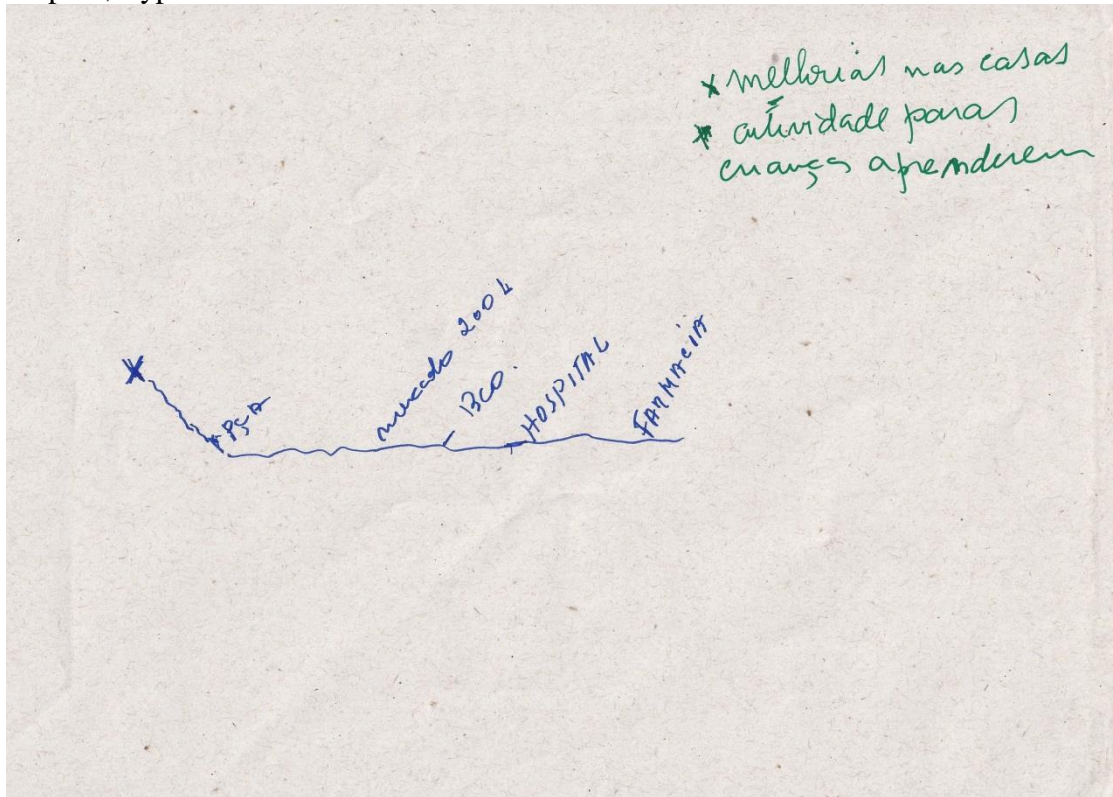 x melhorias nas casas
* atividade paras
criança aprenderem
mercado 2004
BCO.
HOSPITAL
FARMACIA
PÇA